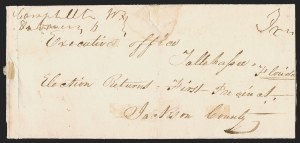 Campbellton W.F.
Executive office
Tallahassee
Florida
Election Returns - First Precinct
Jackson County